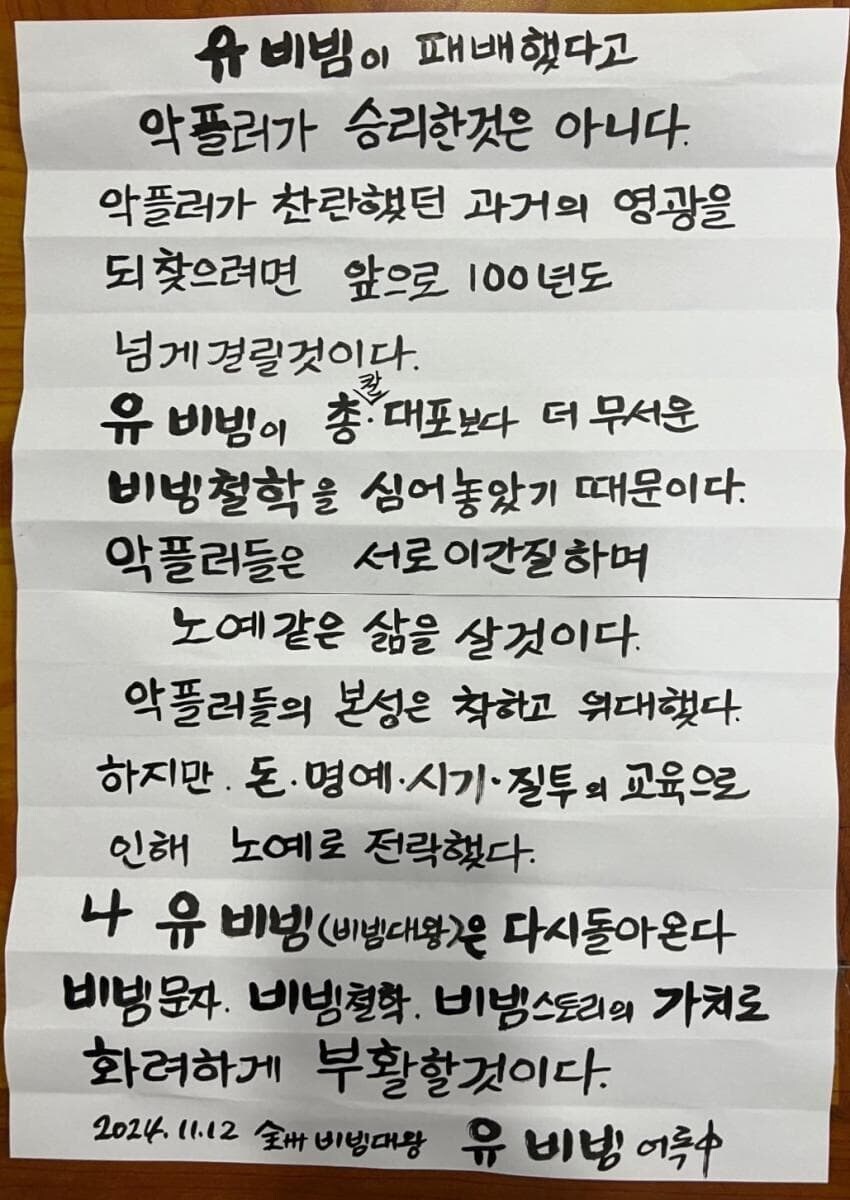 유비빔이 패배했다고
악플러가 승리한것은 아니다.
악플러가 찬란했던 과거의 영광을
되찾으려면 앞으로 100년도
넘게 걸릴것이다.
유비빔이 총·칼 대포보다 더 무서운
비빔철학을 심어놓았기 때문이다.
악플러들은 서로 이간질하며
노예같은 삶을 살것이다.
악플러들의 본성은 착하고 위대했다.
하지만. 돈·명예·시기·질투의 교육으로
인해 노예로 전락했다.
나 유비빔(비빔대왕)은 다시돌아온다
비빔문자. 비빔철학. 비빔스토리의 가치로
화려하게 부활할것이다.
2024.11.12 全州 비빔대왕 유비빔 어록中